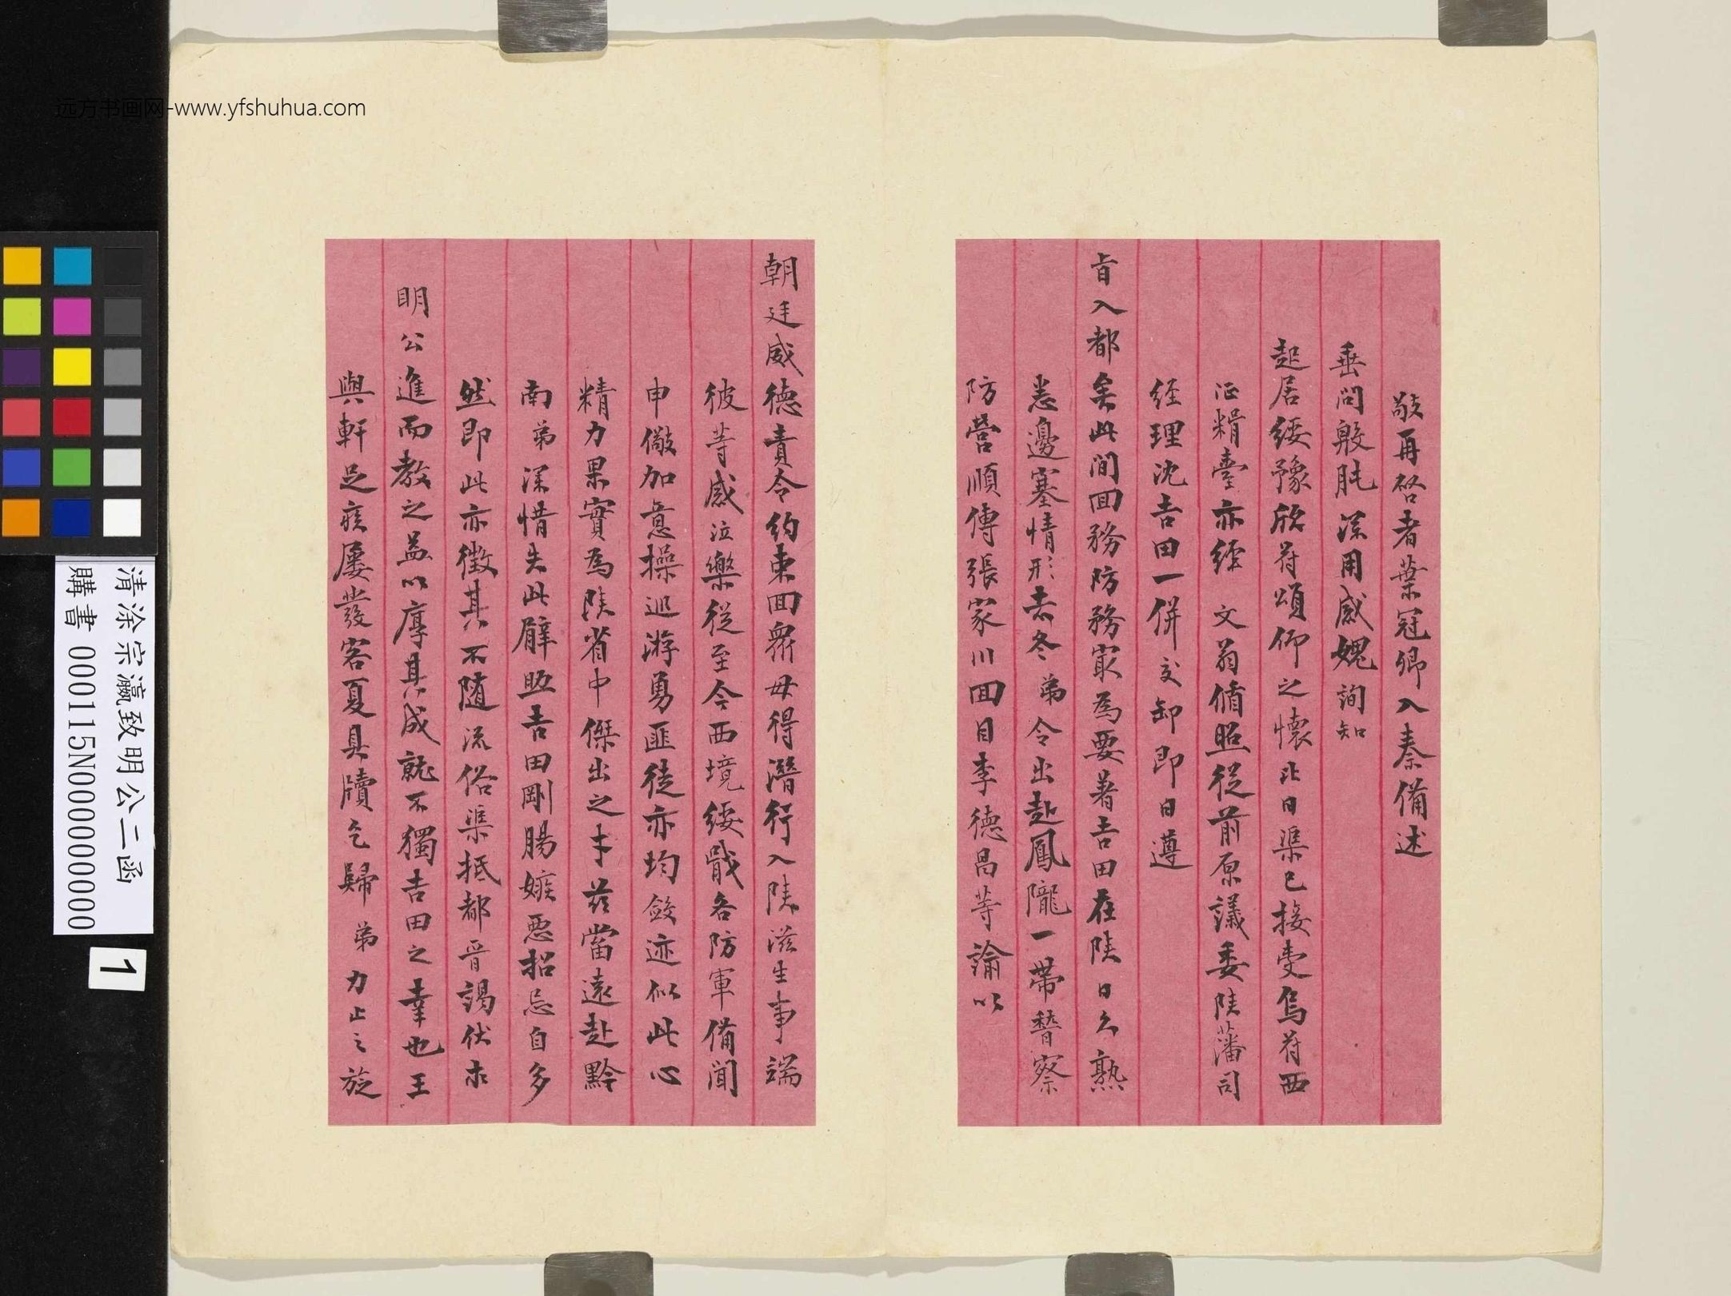 远方书画网-www.yfshuhua.com
敬再啓者葉冠卿入秦備述
垂問殷肫深用感媿詢知
起居綏豫欣符頌仰之懷北日渠已接吏烏符西
征糈臺亦經 文翁循照從前原議委陝藩司
經理沈吉田一併交卸即日遵
旨入都矣此間回務防務最為要著吉田在陝日久熟
悉邊塞情形去冬弟令出赴鳳隴一帶督察
防營順傳張家川回目李德昌等諭以
朝廷威德責令約束回衆毋得潛行入陝滋生事端
彼等感泣樂從至今西境綏戢各防軍備聞
申儆加意操巡游勇匪徒亦均斂迹似此心
精力果實為陝省中傑出之才茲當遠赴黔
南弟深惜失此臂助吉田剛腸嫉惡招忌自多
然即此亦徵其不隨流俗渠抵都晉謁伏求
明公進而教之益以厚其成就不獨吉田之幸也王
與軒足疾屢發客夏具牘乞歸弟力止之旋
清涂宗瀛致明公二函
購書 000115N000000000
1